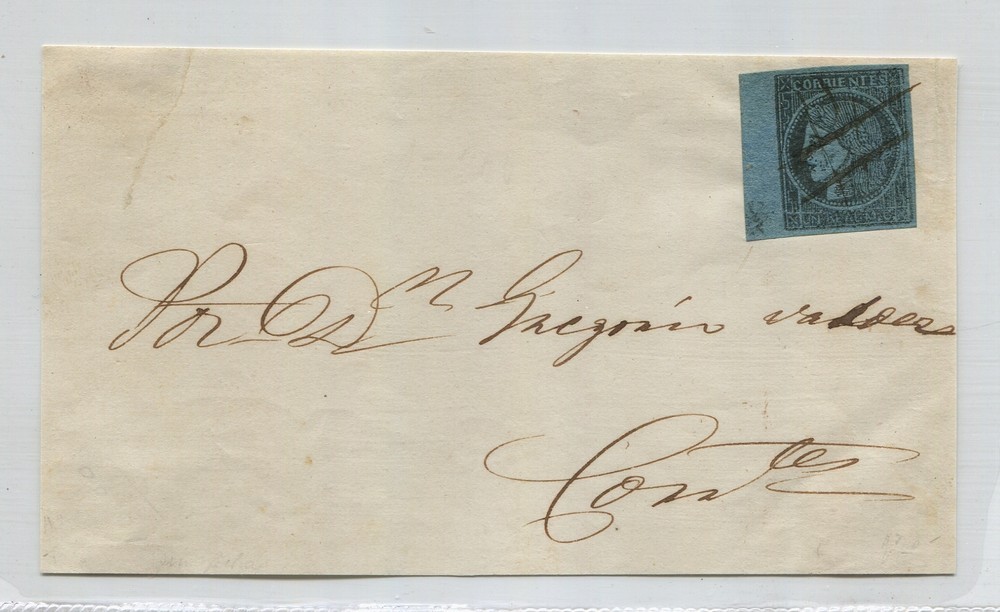 CORRIENTES
UN REAL M.C.
Por Dn Gregorio valdez
Corrtes